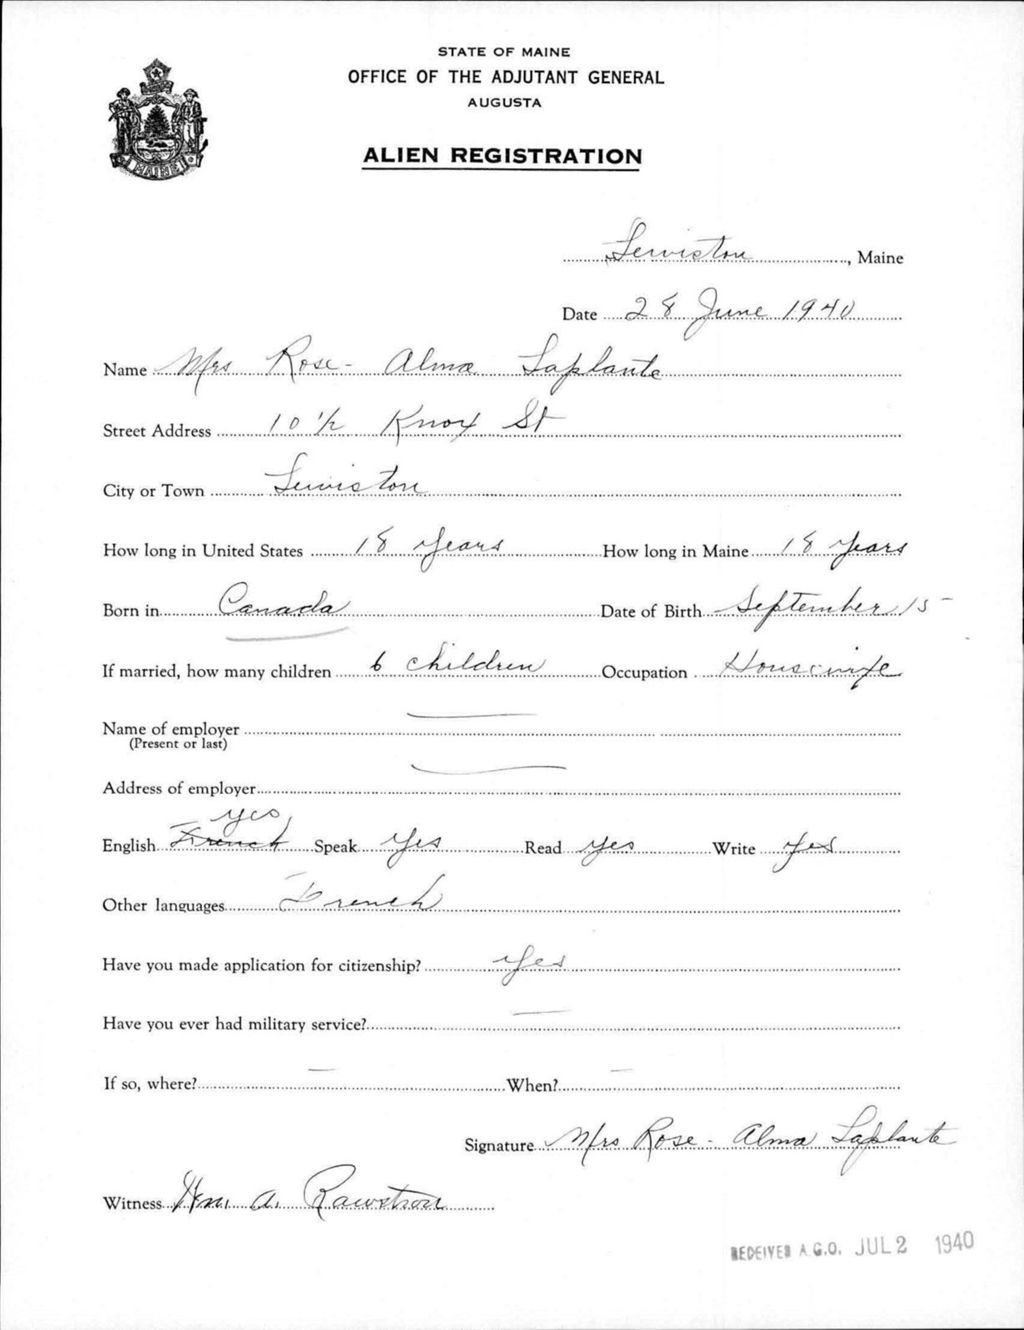 STATE OF MAINE
OFFICE OF THE ADJUTANT GENERAL
AUGUSTA
ALIEN REGISTRATION
MAINE
Lewiston, Maine
Date 28 June 1940
Name Mrs Rose-Alma Laplante
Street Address 10 1/2 Knox St
City or Town Lewiston
How long in United States 18 years How long in Maine 18 years
Born in Canada Date of Birth September 15
If married, how many children 6 children Occupation Housewife
Name of employer —
(Present or last)
Address of employer —
yes
English French Speak Yes Read yes Write yes
Other languages French
Have you made application for citizenship? yes
Have you ever had military service? —
If so, where? — When? —
Signature Mrs Rose-Alma Laplante
Witness Wm. A. Rawstron
RECEIVED A.G.O. JUL 2 1940